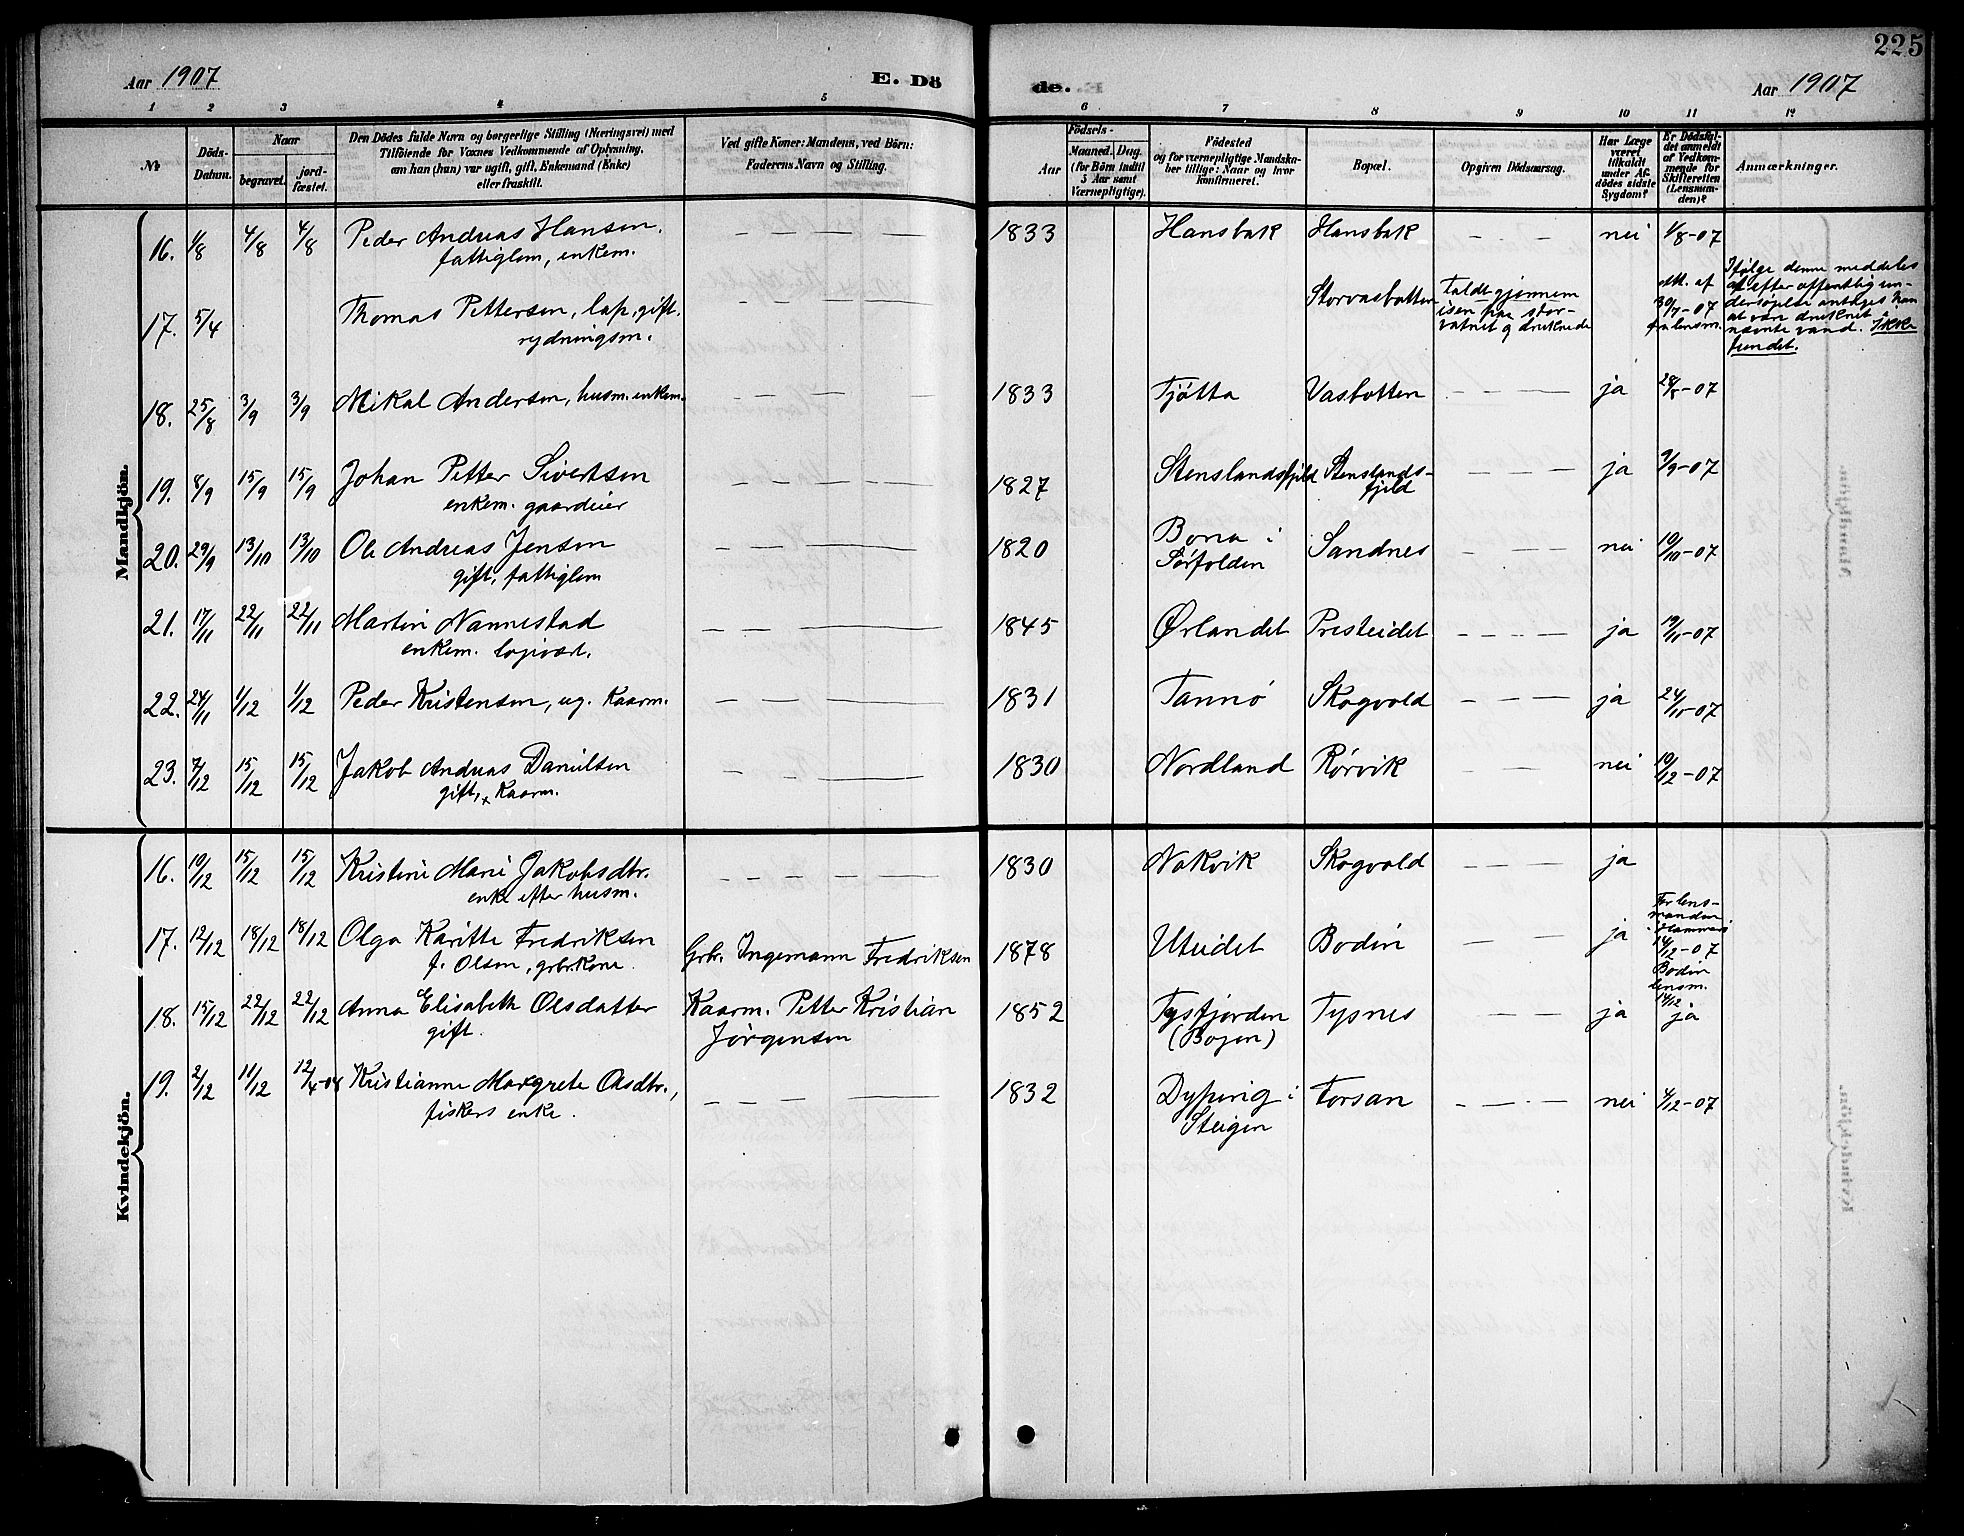 225
Aar 1907 E. Dö de. Aar 1907
1 2 3 4 5 6 7 8 9 10 11 12
№
Döds-
Datum.
Naar
begravet.
jord-
fæstet.
Den Dödes fulde Navn og borgerlige Stilling (Næringsvei) med
Tilföiende for Voxnes Vedkommende af Oplysning,
om han (hun) var ugift, gift, Enkemand (Enke)
eller fraskilt.
Ved gifte Koner: Mandens, ved Börn:
Faderens Navn og Stilling.
Födsels-
Aar
Maaned. Dag.
(for Börn indtil
5 Aar samt
Værnepligtige).
Födested
og for værnepligtige Mandska-
ber tillige: Naar og hvor
konfirmeret.
Bopæl.
Opgiven Dödsaarsag.
Har Læge
været
tilkaldt
under Af-
dödes sidste
Sygdom?
Er Dödsfal-
det anmeldt
af Vedkom-
mende for
Skifteretten
(Lensman-
den)?
Anmærkninger.
Mandkjön.
16. 1/8 4/8 4/8 Peder Andreas Hansen, — — — — 1833 Hansbak Hansbak - - - nei 1/8-07
fattiglem, enkem.
17. 5/4 Thomas Pettersen, lap, gift, — — — — Storvasbotten Faldt gjennem
rydningsm.
isen paa stor-
vatnet og druknede
30/7-07
Ifølge denne meddeles
at efter offentlig un-
dersøgelse antages han
at være druknet i
nævnte vand. Ikke
fundet.
18. 25/8 3/9 3/9 Mikal Andersen, husm. enkem. — — — — 1833 Tjøtta Vasbotten - — — ja 28/8-07
19. 8/9 15/9 15/9 Johan Petter Sivertsen — — — — 1827 Stenslandsfjeld Stenslands-
fjeld — — — ja 9/9-07
enkem. gaardeier
20. 29/9 13/10 13/10 Ole Andreas Jensen — — — — 1820 Bona i
Sørfolden Sandnes — — — nei 19/10-07
gift, fattiglem
21. 17/11 22/11 22/11 Martin Nannestad — — — 1845 Ørlandet Presteidet — — — ja 19/11-07
enkem. lojivært.
22. 24/11 1/12 1/12 Peder Kristensen, ug. Kaarm. — — — — 1831 Tannø Skogvold — — — ja 24/11-07
23. 7/12 15/12 15/12 Jakob Andreas Danielsen — — — 1830 Nordland Rørvik — — nei 19/12-07
gift, Kaarm.
Kvindekjön.
16. 10/12 15/12 15/12 Kristine Marie Jakobsdtr. — — — — 1830 Nakvik Skogvold — — — ja
enke efter husm.
17. 12/12 18/12 18/12 Olga Karitte Fredriksen Grbr. Ingemann Fredriksen 1878 Uteidet Bodin — — ja
f. Olsen, grbr. Kone.
For lens-
manden
i Hammerø
14/12-07
Bodin
lensm.
14/12
18. 15/12 22/12 22/12 Anna Elisabeth Olsdatter Kaarm. Petter Kristian 1852 Tysfjorden Tysnes — — ja ja
gift. Jørgensen (Bogen)
19. 2/12 11/12 12/4-08 Kristianne Margrete Olsdtr., — — — — 1832 Dyping i Forsan — — — nei 4/12-07
fiskers enke. Steigen